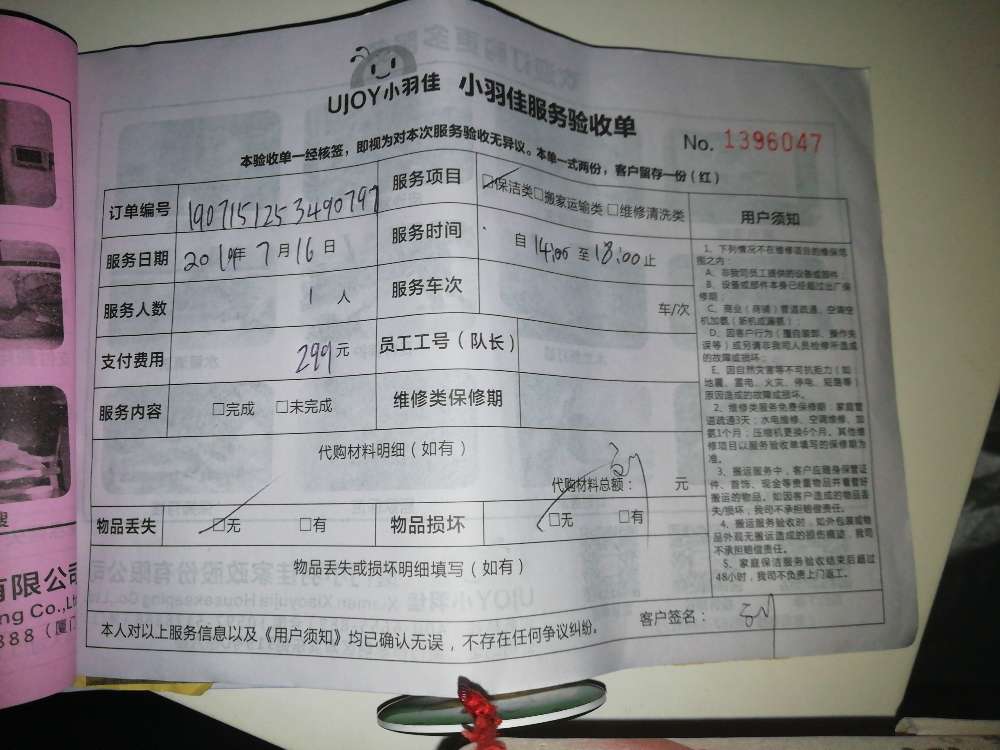 UJOY小羽佳 小羽佳服务验收单
No. 1396047
本验收单一经核签，即视为对本次服务验收无异议。本单一式两份，客户留存一份（红）
订单编号 190715125349079 服务项目 □保洁类□搬家运输类 □维修清洗类 用户须知
服务日期 2019年 7月16日 服务时间 自 14:00 至 18:00 止
服务人数 1 人 服务车次 车/次
支付费用 299元 员工工号（队长）
服务内容 □完成 □未完成 维修类保修期
代购材料明细（如有）
代购材料总额： 元
物品丢失 □无 □有 物品损坏 □无 □有
物品丢失或损坏明细填写（如有）
本人对以上服务信息以及《用户须知》均已确认无误，不存在任何争议纠纷。 客户签名：
1、下列情况不在维修项目的维保范
围之内：
A、非我司员工提供的设备或部件；
B、设备或部件本身已经超过出厂保
修期；
C、商业（商铺）管道疏通、空调空
机加氨（新机或漏氨）；
D、因客户行为（蛋白装卸、操作失
误等）或另请非我司人员检修所造成
的故障或损坏；
E、因自然灾害等不可抗拒力（如
地震、雷电、火灾、停电、短路等）
原因造成的故障或损坏。
2、维修类服务免费保修期：家庭管
道疏通3天；水电维修、空调维修、加
氨1个月；压缩机更换6个月。其他维
修项目以服务验收单填写的保修期为
准。
3、搬运服务中，客户应随身保管证
件、首饰、现金等贵重物品并看管好
搬运的物品。如因客户造成的物品丢
失/损坏，我司不承担赔偿责任。
4、搬运服务验收时，如外包装或物
品外观无搬运造成的损伤痕迹，我司
不承担赔偿责任。
5、家庭保洁服务验收结束后超过
48小时，我司不负责上门返工。
有限公司
ing Co.,Lt
888（厦门